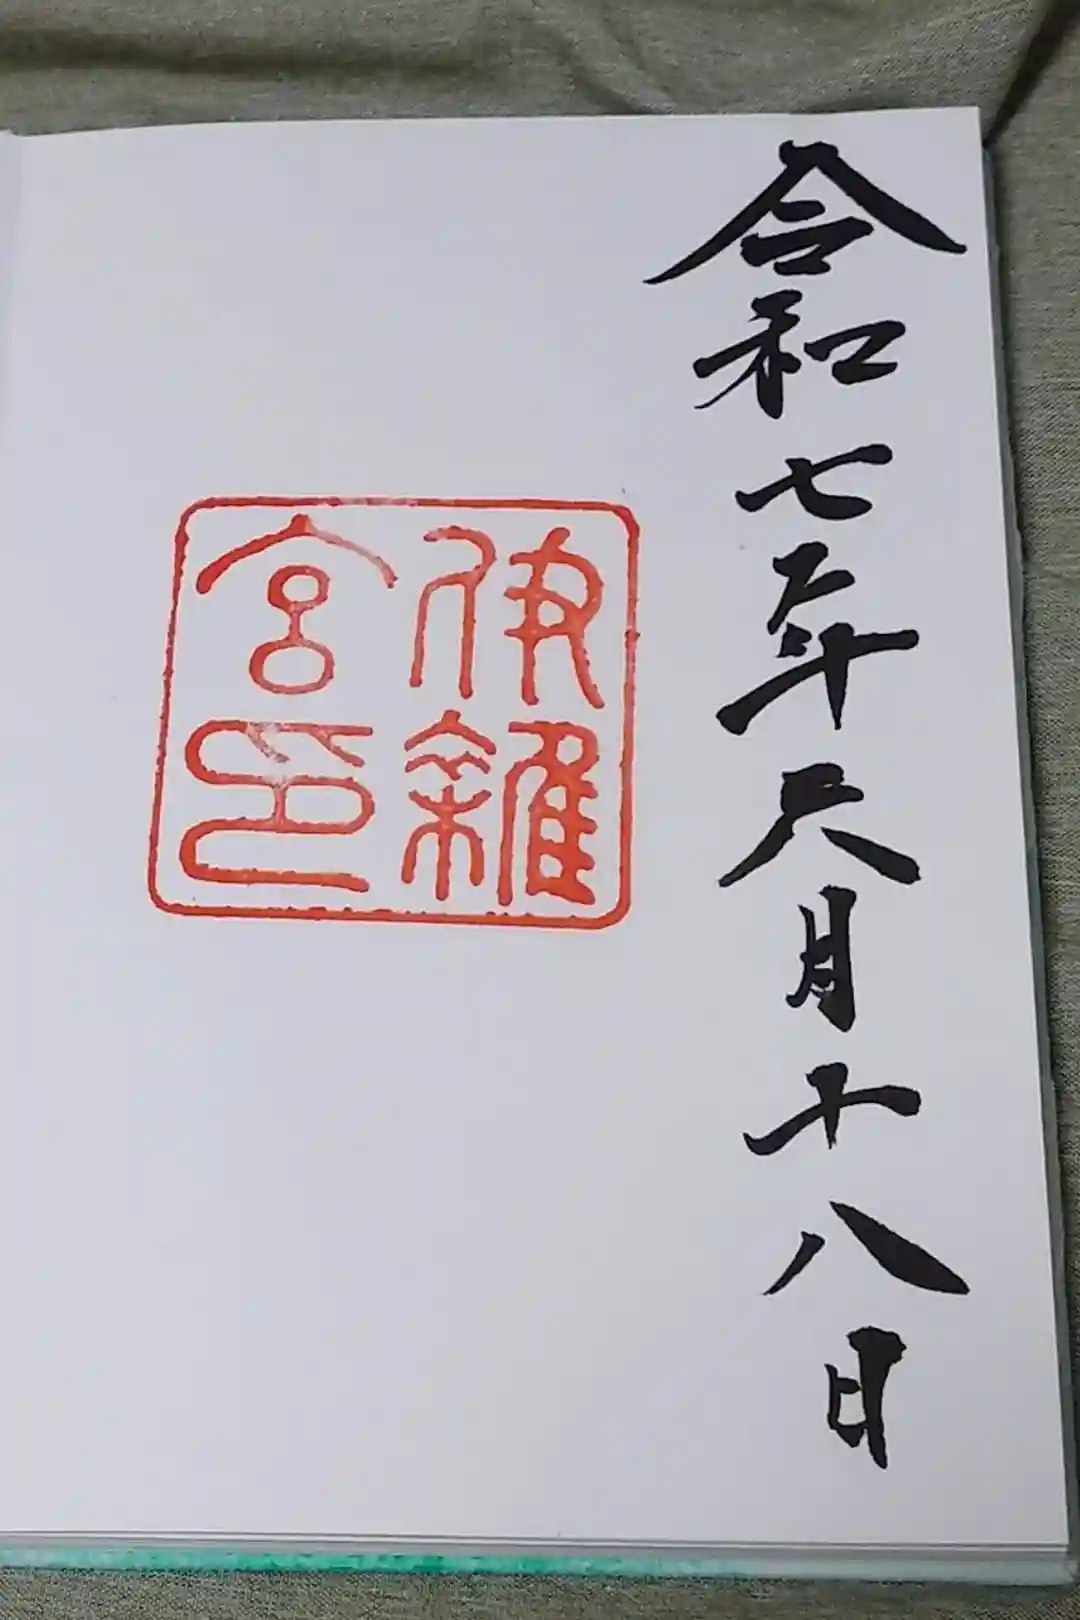 令和七年六月十八日
伊雜
宮印